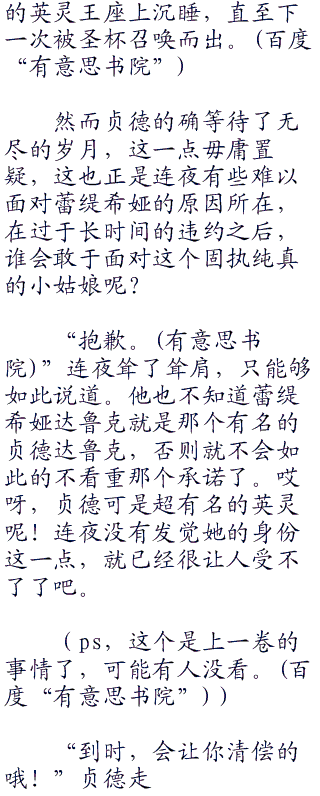 的英灵王座上沉睡，直至下
一次被圣杯召唤而出。(百度
“有意思书院”)
然而贞德的确等待了无
尽的岁月，这一点毋庸置
疑，这也正是连夜有些难以
面对蕾缇希娅的原因所在，
在过于长时间的违约之后，
谁会敢于面对这个固执纯真
的小姑娘呢？
“抱歉。(有意思书
院)”连夜耸了耸肩，只能够
如此说道。他也不知道蕾缇
希娅达鲁克就是那个有名的
贞德达鲁克，否则就不会如
此的不看重那个承诺了。哎
呀，贞德可是超有名的英灵
呢！连夜没有发觉她的身份
这一点，就已经很让人受不
了了吧。
（ps，这个是上一卷的
事情了，可能有人没看。(百
度“有意思书院”)）
“到时，会让你清偿的
哦！”贞德走